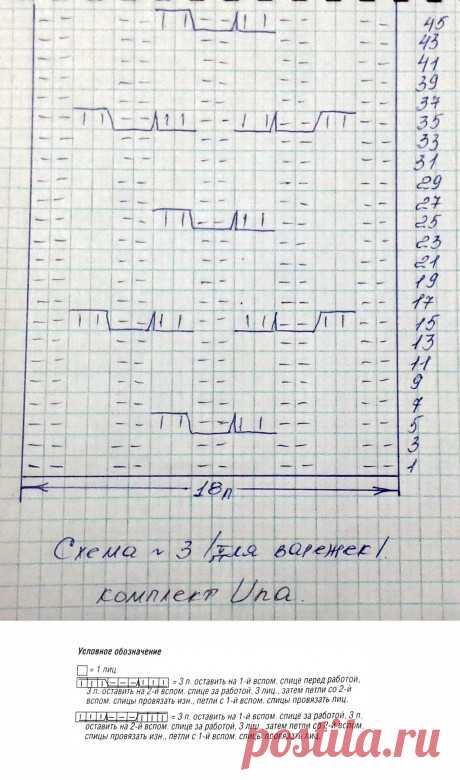 45
43
41
39
37
35
33
31
29
27
25
23
21
19
17
15
13
11
9
7
5
3
1
18п
Схема ~ 3 /для варежек/.
комплект Una.
Условное обозначение
= 1 лиц.
= 3 п. оставить на 1-й вспом. спице перед работой,
3 п. оставить на 2-й вспом. спице за работой, 3 лиц., затем петли со 2-й
вспом. спицы провязать изн., петли с 1-й вспом. спицы провязать лиц.
= 3 п. оставить на 1-й вспом. спице за работой, 3 п.
оставить на 2-й вспом. спице за работой, 3 лиц., затем петли со 2-й вспом.
спицы провязать изн., петли с 1-й вспом. спицы провязать лиц.
postila.ru